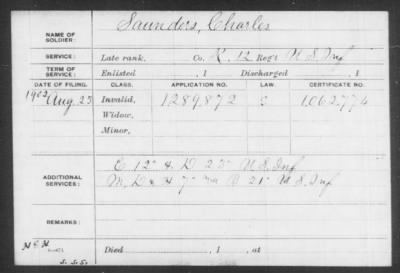 NAME OF SOLDIER: Saunders, Charles
SERVICE: Late rank, Co. K, 12 Reg't U S Inf
TERM OF SERVICE: Enlisted , 1 Discharged , 1
DATE OF FILING. CLASS. APPLICATION NO. LAW. CERTIFICATE NO.
1902 Aug. 23 Invalid, 1289,872 1,062,774
Widow,
Minor,
ADDITIONAL SERVICES:
C 12" & D 23" U S Inf
21" U S Inf
REMARKS:
Died , 1 , at